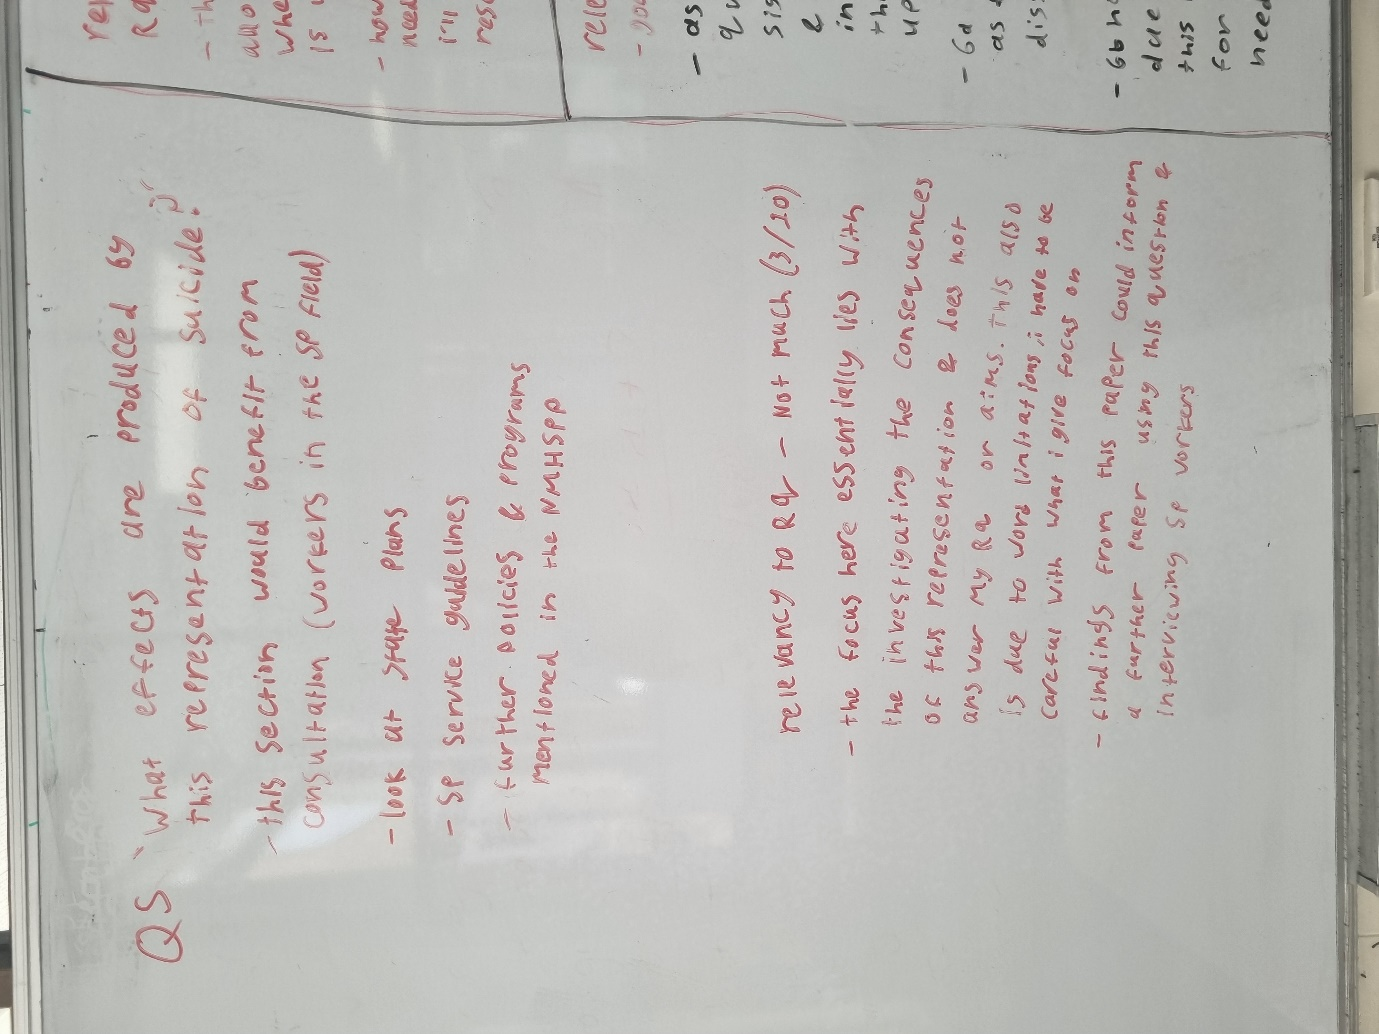 Q5 "What effects are produced by
this representation of suicide?"
- this section would benefit from
consultation (workers in the SP field)
- look at state plans
- SP service guidelines
- further policies & programs
mentioned in the NMHSPP
relevancy to RQ - Not much (3/10)
- the focus here essentially lies with
the investigating the consequences
of this representation & does not
answer my RQ or aims. This also
is due to word limitations, i have to be
careful with what i give focus on
- findings from this paper could inform
a further paper using this question &
interviewing SP workers
rele
- as
- Gd
as
dis
- Gb
due
this
for
need
- how
need
i'll